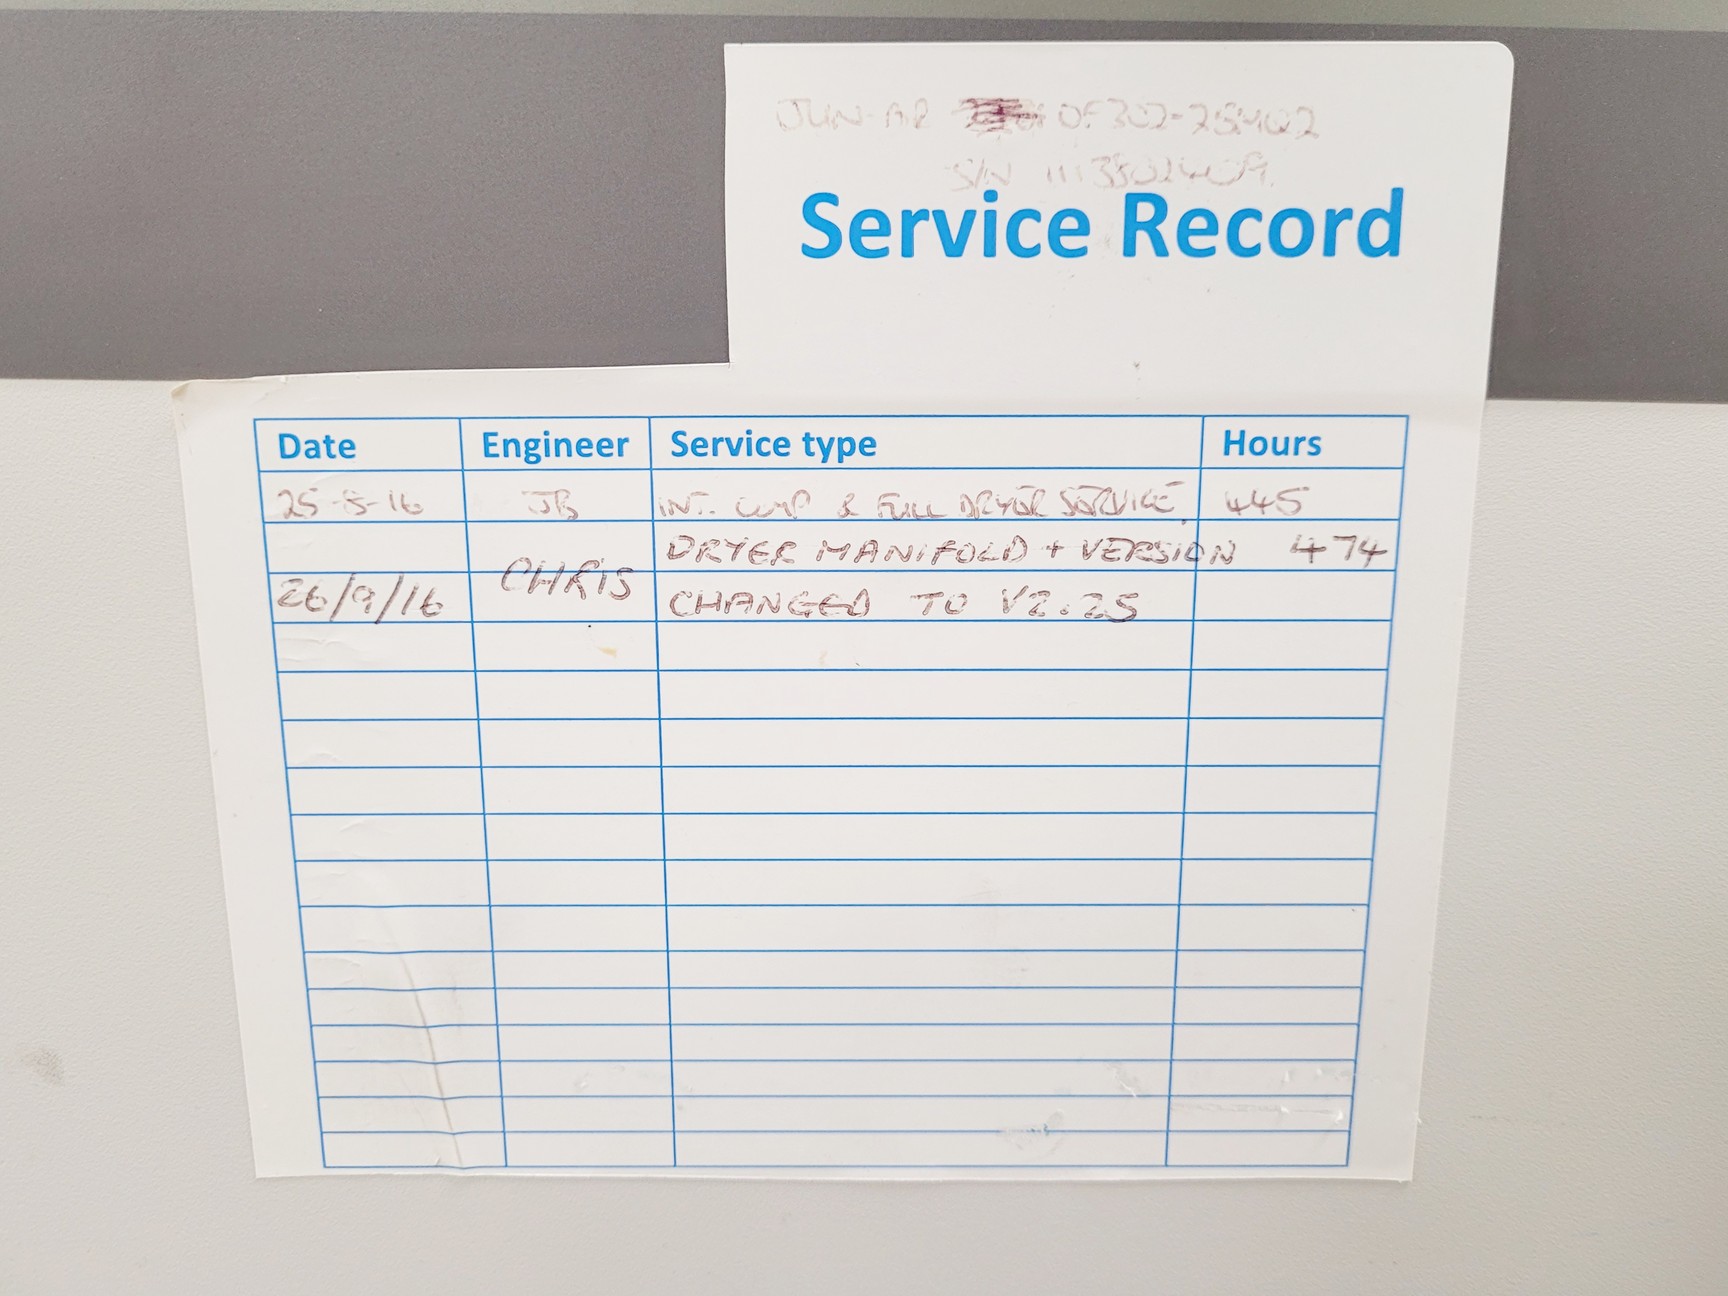 JUN-AIR OF302-25MQ2
S/N 1113302409
Service Record
Date Engineer Service type Hours
25-8-16 JB INT. COMP & FULL DRYER SERVICE. 445
DRYER MANIFOLD + VERSION 474
26/9/16 CHRIS CHANGED TO V2.25